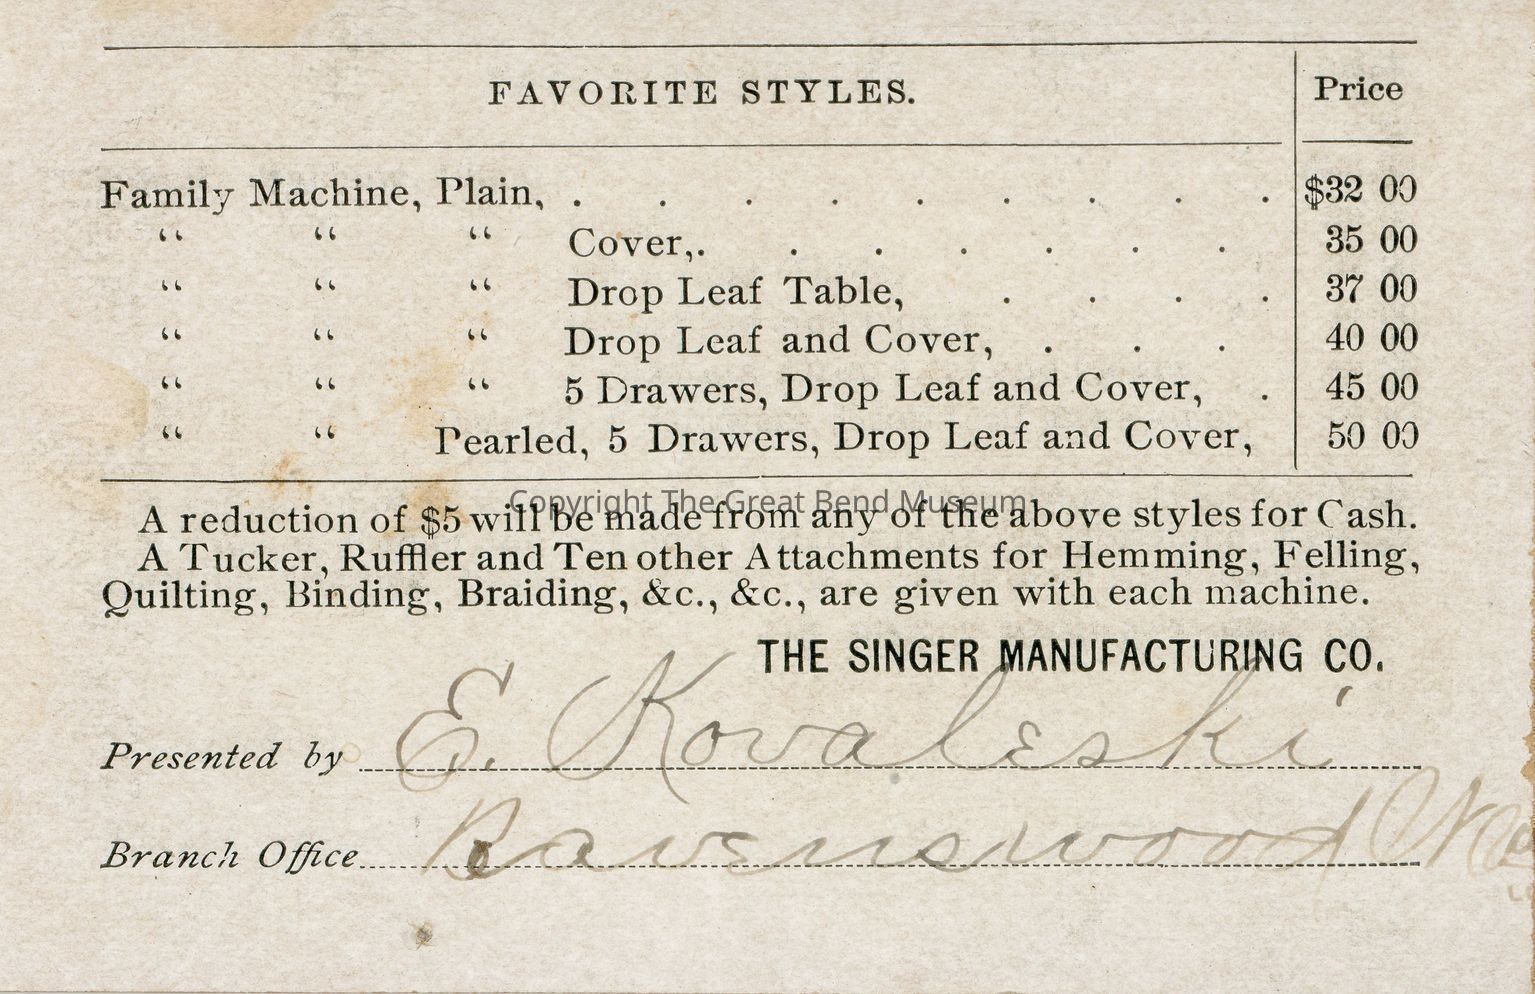 FAVORITE STYLES. Price
Family Machine, Plain, . . . . . . . . . $32 00
“ “ “ Cover,. . . . . . . 35 00
“ “ “ Drop Leaf Table, . . . . 37 00
“ “ “ Drop Leaf and Cover, . . . 40 00
“ “ “ 5 Drawers, Drop Leaf and Cover, . 45 00
“ “ Pearled, 5 Drawers, Drop Leaf and Cover, 50 00
Copyright The Great Bend Museum
A reduction of $5 will be made from any of the above styles for Cash.
A Tucker, Ruffler and Ten other Attachments for Hemming, Felling,
Quilting, Binding, Braiding, &c., &c., are given with each machine.
THE SINGER MANUFACTURING CO.
Presented by E. Kovaleski
Branch Office Ravenswood